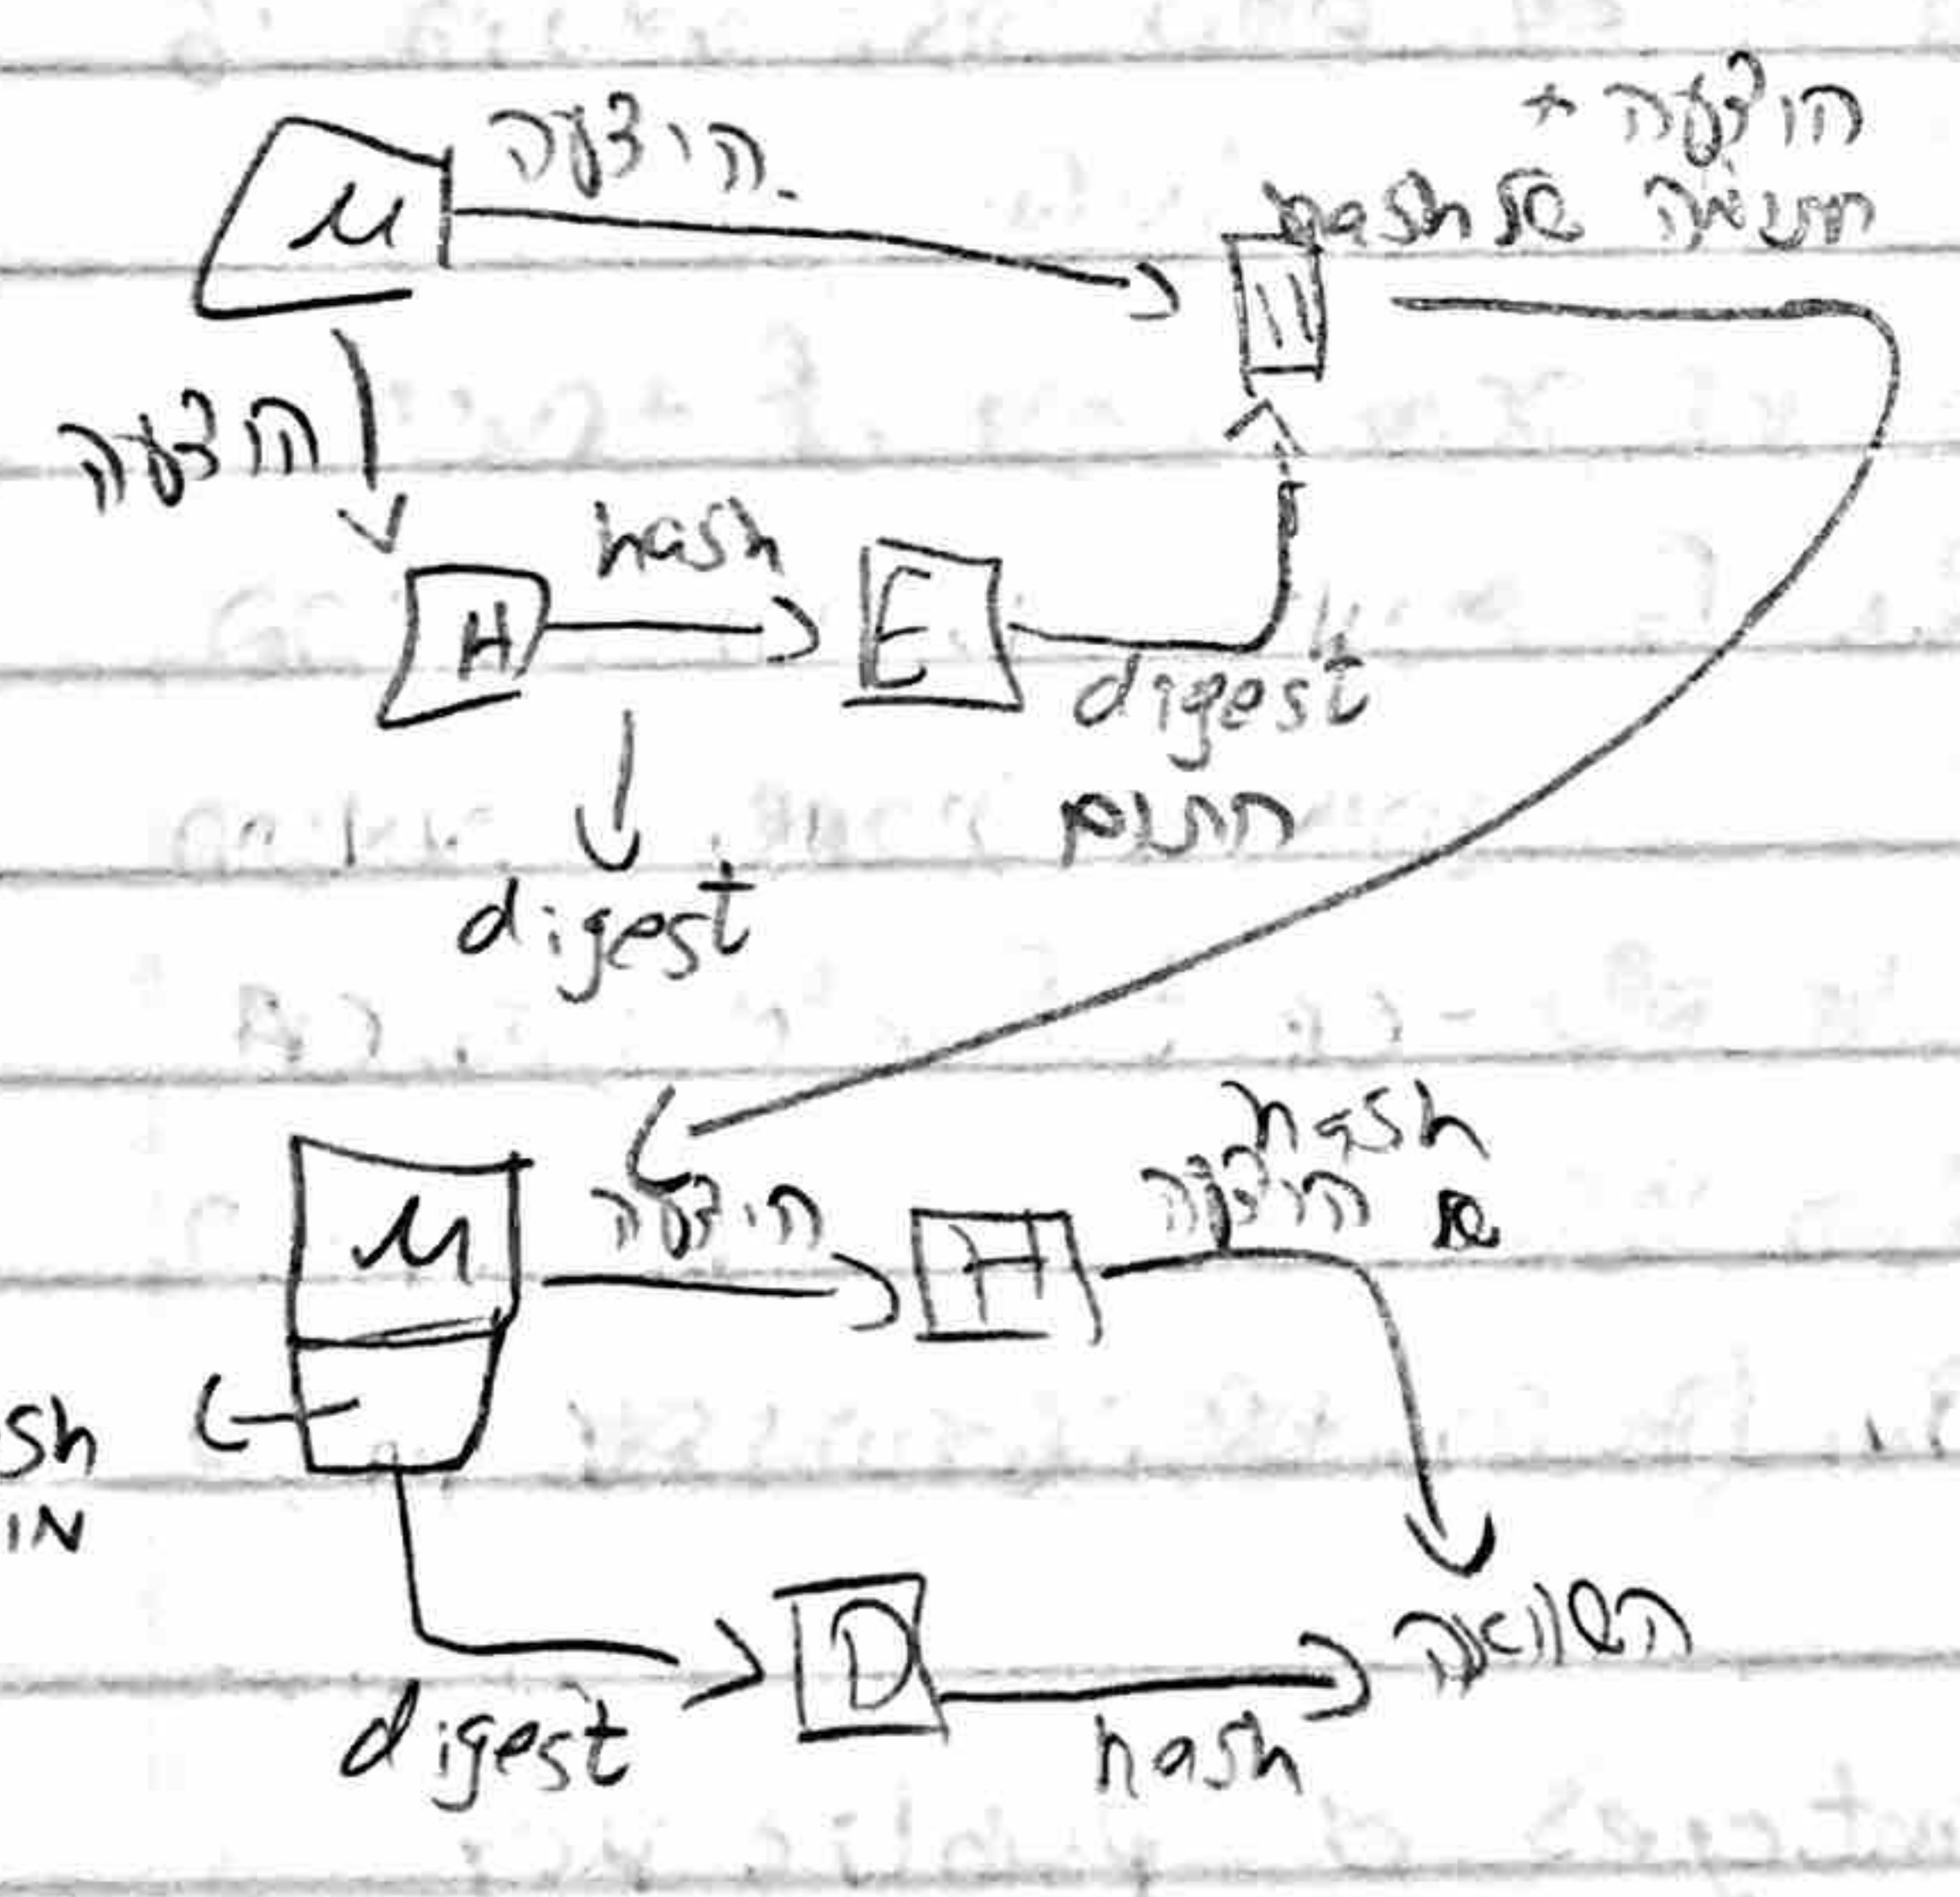 הודעה +
הודעה
M
חתימה של hash
||
הודעה
hash
H
E
digest
חתום
digest
hash
M
הודעה
H
של הודעה
sh
IN
D
השוואה
digest
hash